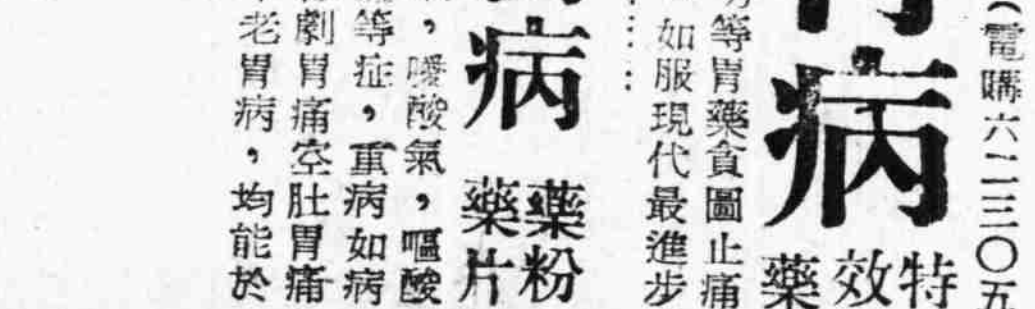 （電購六二三〇五
病
特效藥
等胃藥貪圖止痛
如服現代最進步
……
病
藥粉
藥片
，噯酸氣，嘔酸
等症，重病如病
劇胃痛空肚胃痛
老胃病，均能於